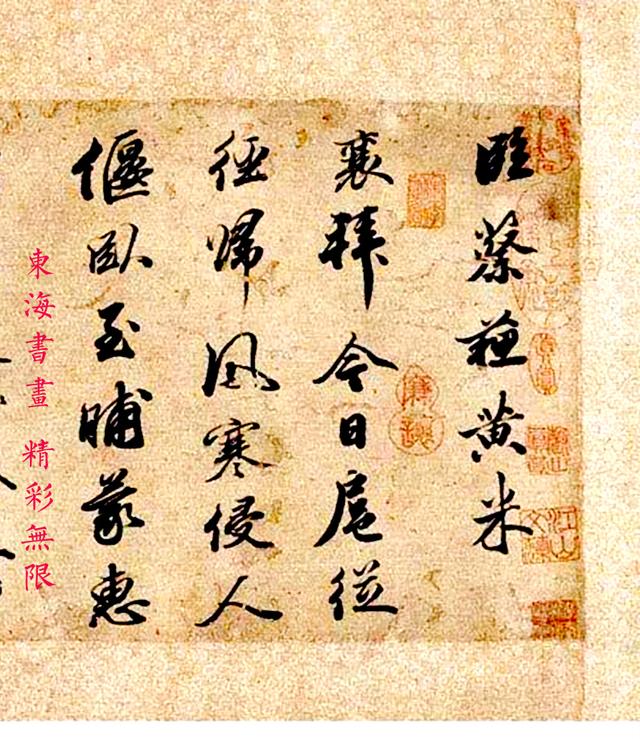 臨蔡蘇黃米
襄拜今日扈從
徑歸風寒侵人
偃臥至晡蒙惠
東海書畫 精彩無限